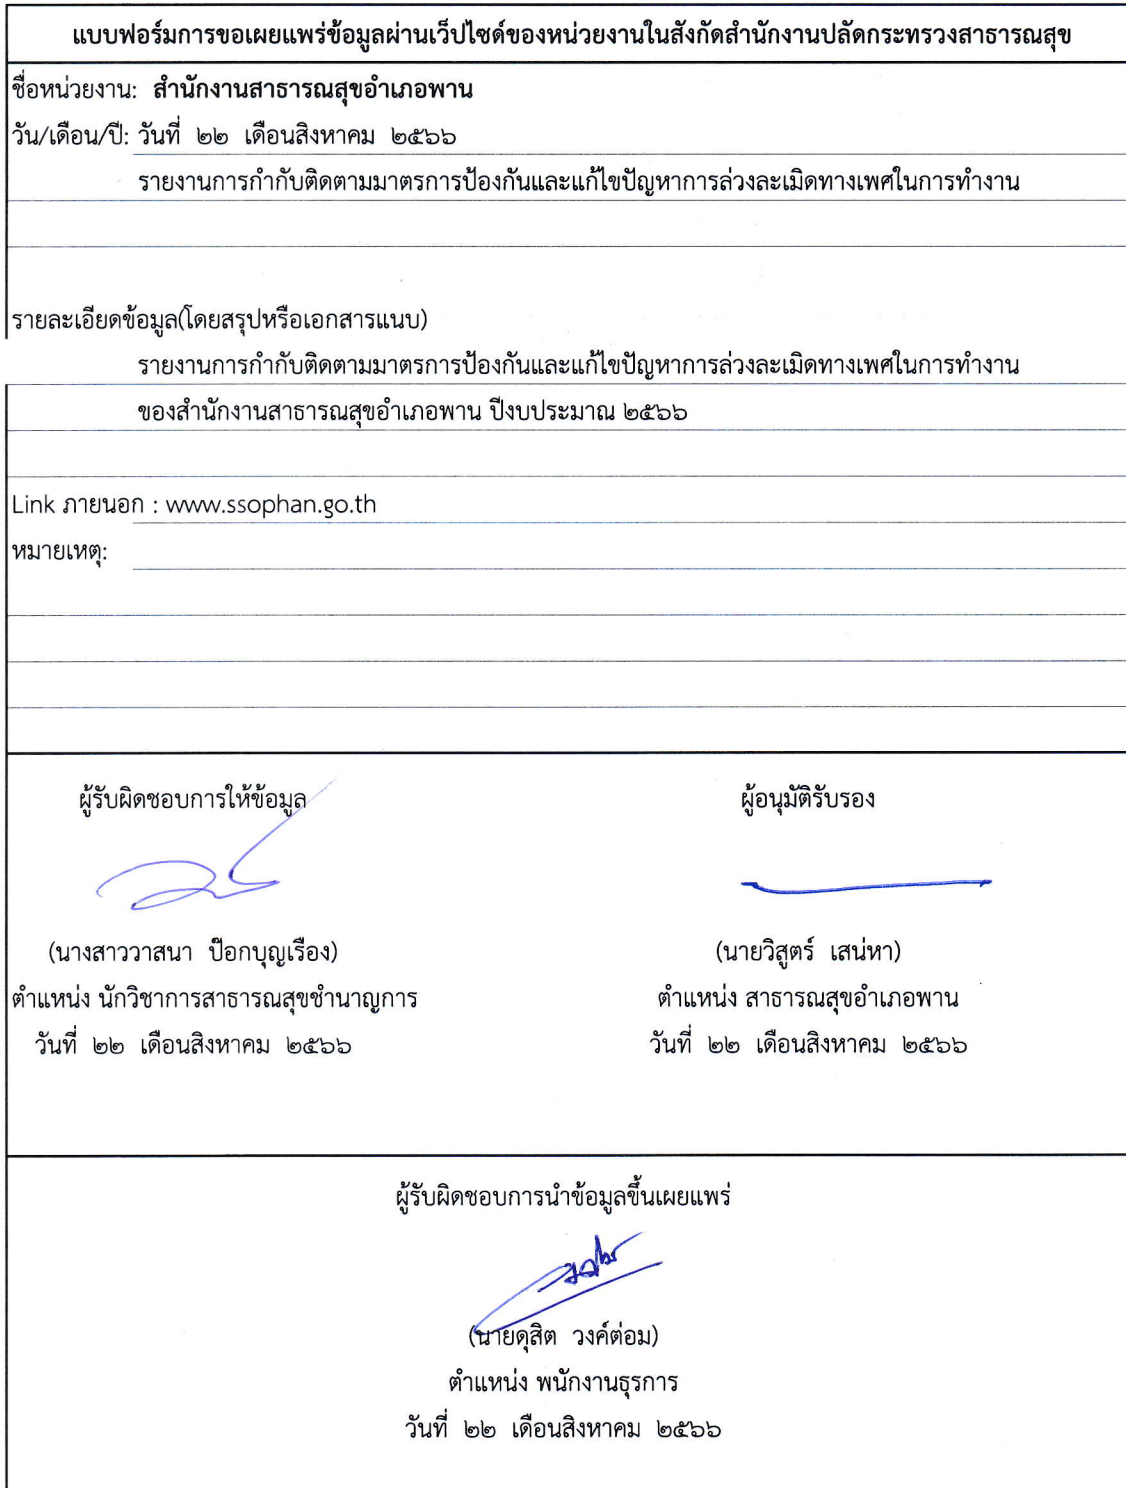 แบบฟอร์มการขอเผยแพร่ข้อมูลผ่านเว็ปไซด์ของหน่วยงานในสังกัดสำนักงานปลัดกระทรวงสาธารณสุข
ชื่อหน่วยงาน: สำนักงานสาธารณสุขอำเภอพาน
วัน/เดือน/ปี: วันที่ ๒๒ เดือนสิงหาคม ๒๕๖๖
รายงานการกำกับติดตามมาตรการป้องกันและแก้ไขปัญหาการล่วงละเมิดทางเพศในการทำงาน
รายละเอียดข้อมูล(โดยสรุปหรือเอกสารแนบ)
รายงานการกำกับติดตามมาตรการป้องกันและแก้ไขปัญหาการล่วงละเมิดทางเพศในการทำงาน
ของสำนักงานสาธารณสุขอำเภอพาน ปีงบประมาณ ๒๕๖๖
Link ภายนอก : www.ssophan.go.th
หมายเหตุ:
ผู้รับผิดชอบการให้ข้อมูล ผู้อนุมัติรับรอง
(นางสาววาสนา ป๊อกบุญเรือง) (นายวิสูตร์ เสน่หา)
ตำแหน่ง นักวิชาการสาธารณสุขชำนาญการ ตำแหน่ง สาธารณสุขอำเภอพาน
วันที่ ๒๒ เดือนสิงหาคม ๒๕๖๖ วันที่ ๒๒ เดือนสิงหาคม ๒๕๖๖
ผู้รับผิดชอบการนำข้อมูลขึ้นเผยแพร่
(นายดุสิต วงค์ต่อม)
ตำแหน่ง พนักงานธุรการ
วันที่ ๒๒ เดือนสิงหาคม ๒๕๖๖